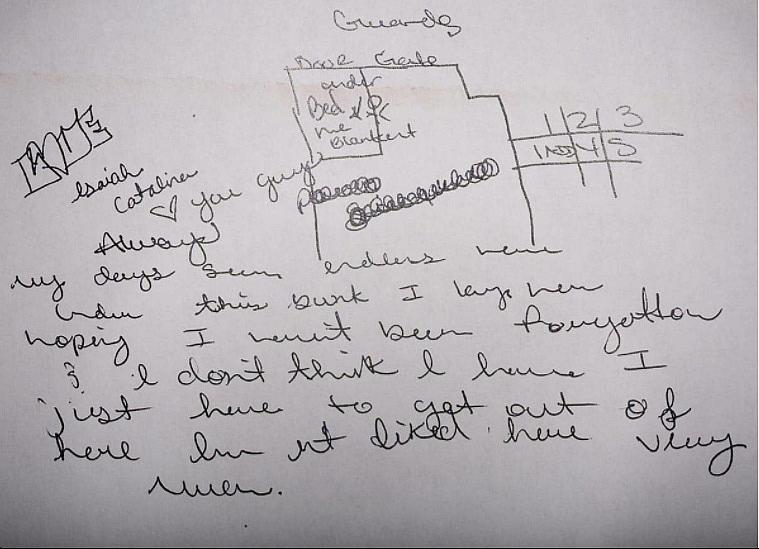 Guards
Door Gate
under
Bed
me
Blankert
1 2 3
4 5
LOVE
Isaiah
Catalina
you guys
Always
my days seem endless here
under this bunk I lay here
hoping I havn't been fourgotton
& I don't think I have I
just have to get out of
here Im nt liked here very
much.